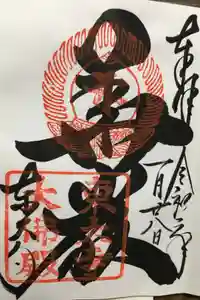 奉拝
令和 年
一月廿八日
華厳
東大寺
東大寺
大佛殿